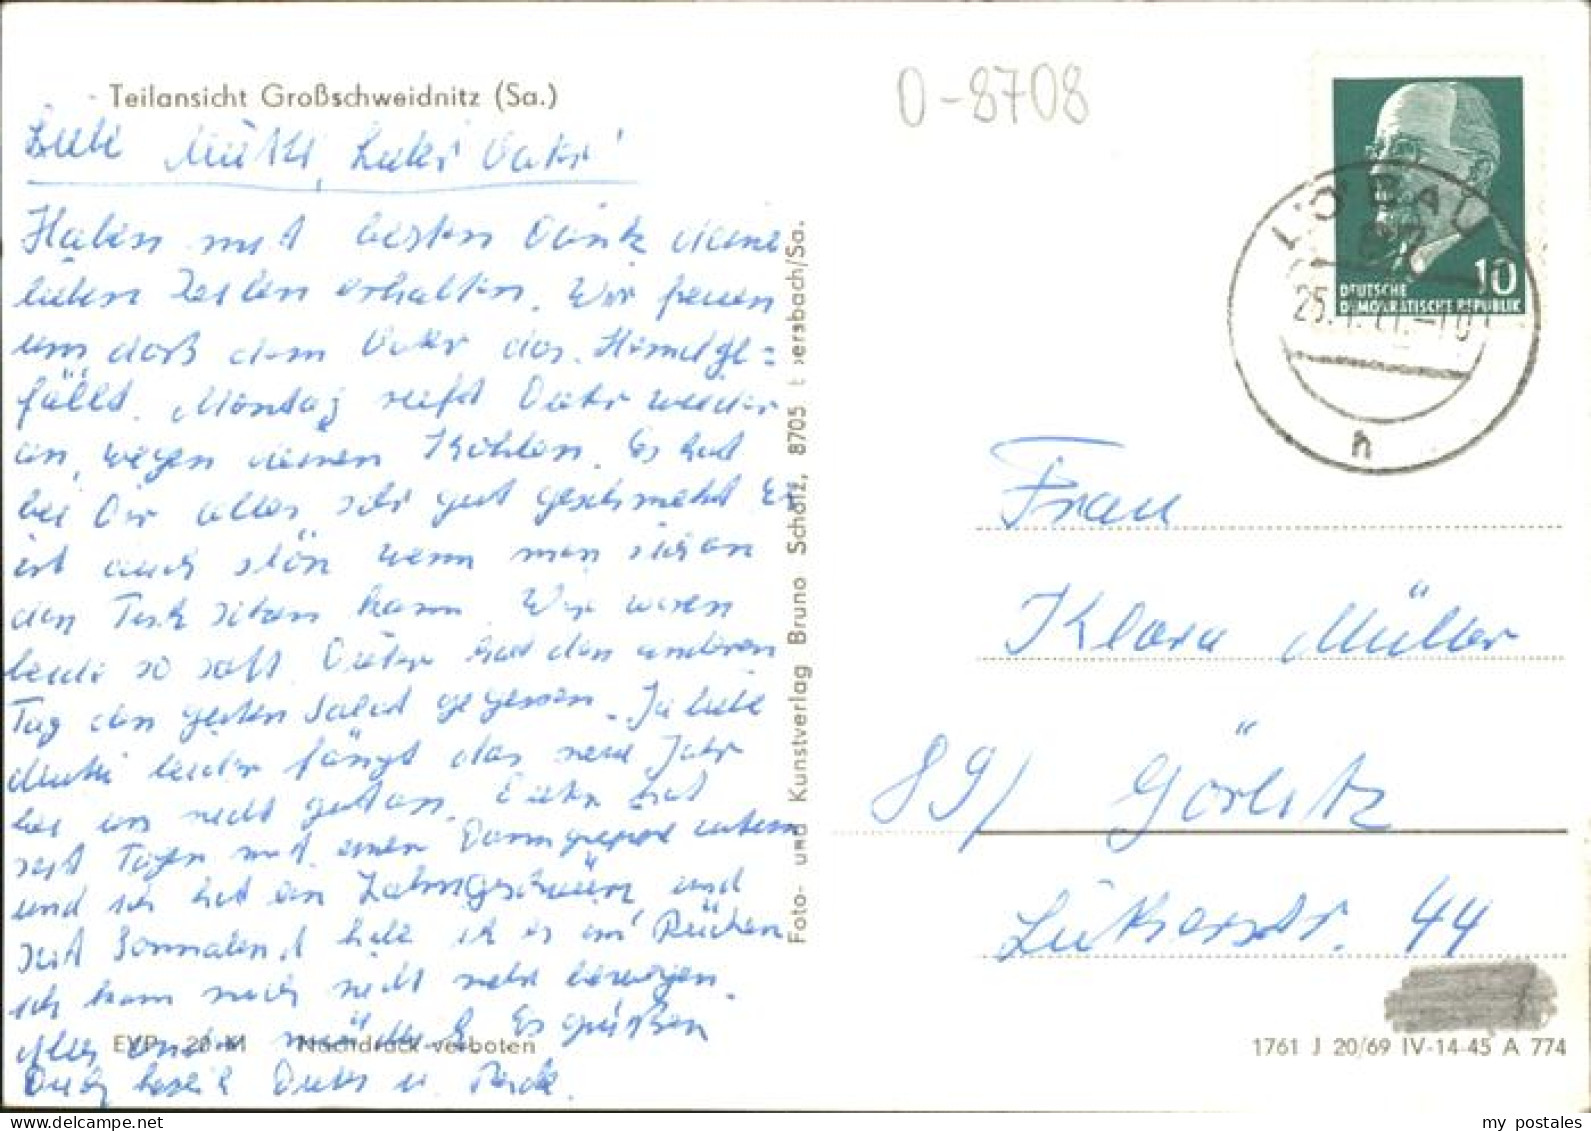 Teilansicht Großschweidnitz (Sa.)
Liebe Mutti, Lieber Vater!
Haben mit besten Dank deine
lieben Zeilen erhalten. Wir freuen
uns daß dem Vater das
fällt. Montag ruft Dieter wieder
an, wegen deinen Kohlen. Es hat
bei Dir alles sehr gut geschmeckt Es
ist auch schön wenn man sich an
den Tisch sitzen kann. Wir waren
beide so satt. Dieter hat den anderen
Tag den guten Salat gegessen. Ja liebe
Mutti leider fängt das neue Jahr
bei uns nicht gut an. Dieter hat
seit Tagen mit einer Darmgrippe
und ich hat ein Zahngeschwür und
seit Sonnabend habe ich es im Rücken
ich kann mich nicht mehr bewegen.
Es grüßen
Euch herzlich Dieter u.
EVP -20 M Nachdruck verboten
Foto- und Kunstverlag Bruno Scholz, 8705 Ebersbach/Sa.
0-8708
10
DEUTSCHE
DEMOKRATISCHE REPUBLIK
LÖBAU
87
25.1.71.-10
h
Frau
Klara Müller
89/ Görlitz
Lutherstr. 44
1761 J 20/69 IV-14-45 A 774
my postales